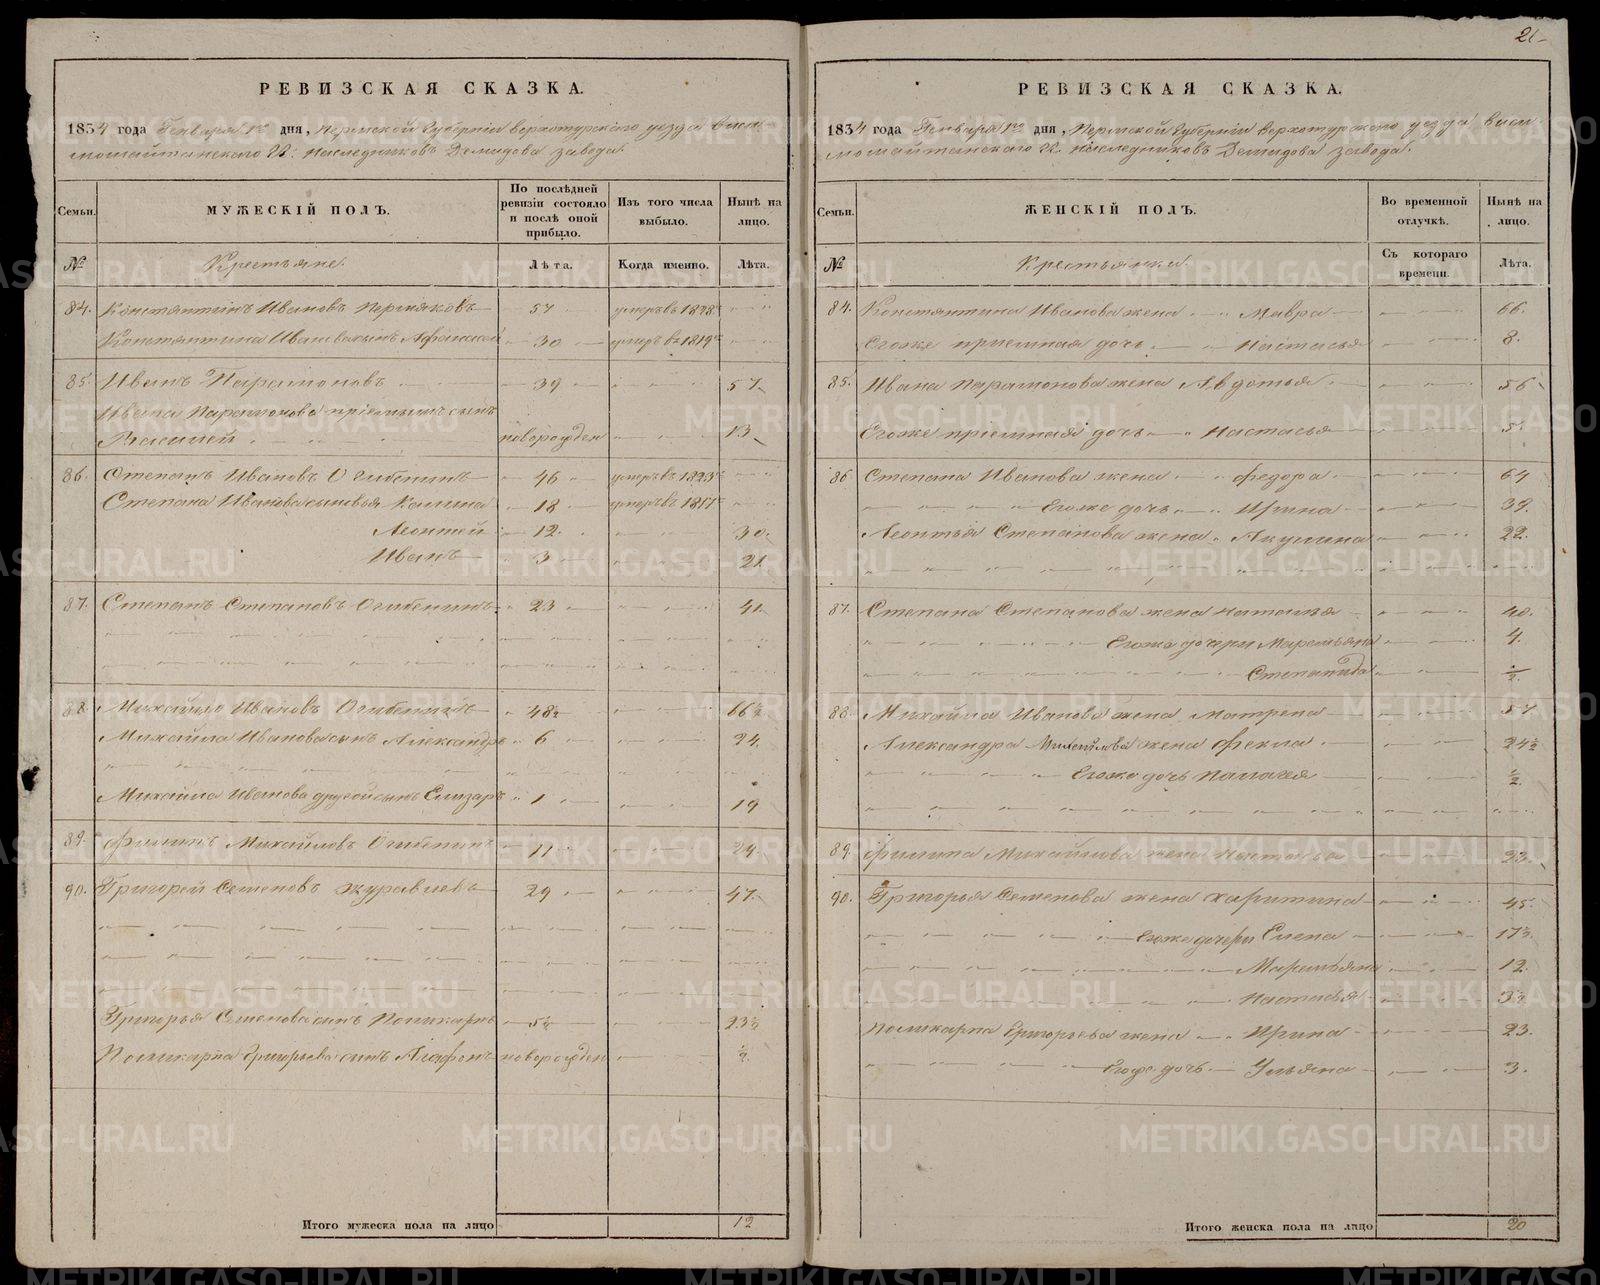 21
РЕВИЗСКАЯ СКАЗКА.
1834 года Генваря 1го дня, Пермской Губернии Верхотурского уезда Висимошайтанского Гг. Наследниковъ Демидова завода.
Семьи.
МУЖЕСКІЙ ПОЛЪ.
По послѣдней ревизіи состояло и послѣ оной прибыло.
Изъ того числа выбыло.
Нынѣ на лицо.
№ Крестьяне. Лѣта. Когда именно. Лѣта.
84. Константинъ Ивановъ Пермяковъ 57 умеръ въ 1828
Константина Иванова сынъ 30 умеръ въ 1819
85. Иванъ Парамоновъ 39 57
Ивана Парамонова пріемышъ сынъ
новорожден 13
86. Степанъ Ивановъ Огибенинъ 46 умеръ въ 1823
Степана Иванова сыновья 18 умеръ въ
Леонтей 12 30
Иванъ 3 21
87. Степанъ Степановъ Огибенинъ 23 41
88. Михайло Ивановъ Огибенинъ 48½ 66½
Михайла Иванова сынъ Александръ 6 24
Михайла Иванова другой сынъ Елизаръ 1 19
89. Филипъ Михайловъ Огибенинъ 11 29
90. Григорей Семеновъ Журавлевъ 29 47
Григорья Семенова сынъ Поликарпъ 5½ 23½
Поликарпа Григорьева сынъ Агафонъ новорожден ½
Итого мужеска пола на лицо 12
РЕВИЗСКАЯ СКАЗКА.
1834 года Генваря 1го дня, Пермской Губернии Верхотурского уезда Висимошайтанского Гг. Наследниковъ Демидова завода.
Семьи.
ЖЕНСКІЙ ПОЛЪ.
Во временной отлучкѣ.
Нынѣ на лицо.
№ Крестьянки. Съ котораго времени. Лѣта.
84. Константина Иванова жена Мавра 66
Егоже приемная дочь Настасья 8
85. Ивана Парамонова жена Авдотья 56
Егоже пріемная дочь Настасья 5
86 Степана Иванова жена Федора 64
Егоже дочь Ирина 39
Леонтья Степанова жена Акулина 22
87. Степана Степанова жена Наталья 40
Егоже дочери Маремьяна 4
Степанида ½
88. Михайла Иванова жена Матрена 57
Александра Михайлова жена Фекла 24½
Егоже дочь Палагея ½
89. Филипа Михайлова жена Настасья 23
90. Григорья Семенова жена Харитина 45
Егоже дочери Елена 17½
Маремьяна 12
Настасья 3½
Поликарпа Григорьева жена Ирина 23
Егоже дочь Ульяна 3
Итого женска пола на лицо 20
METRIKI.GASO-URAL.RU